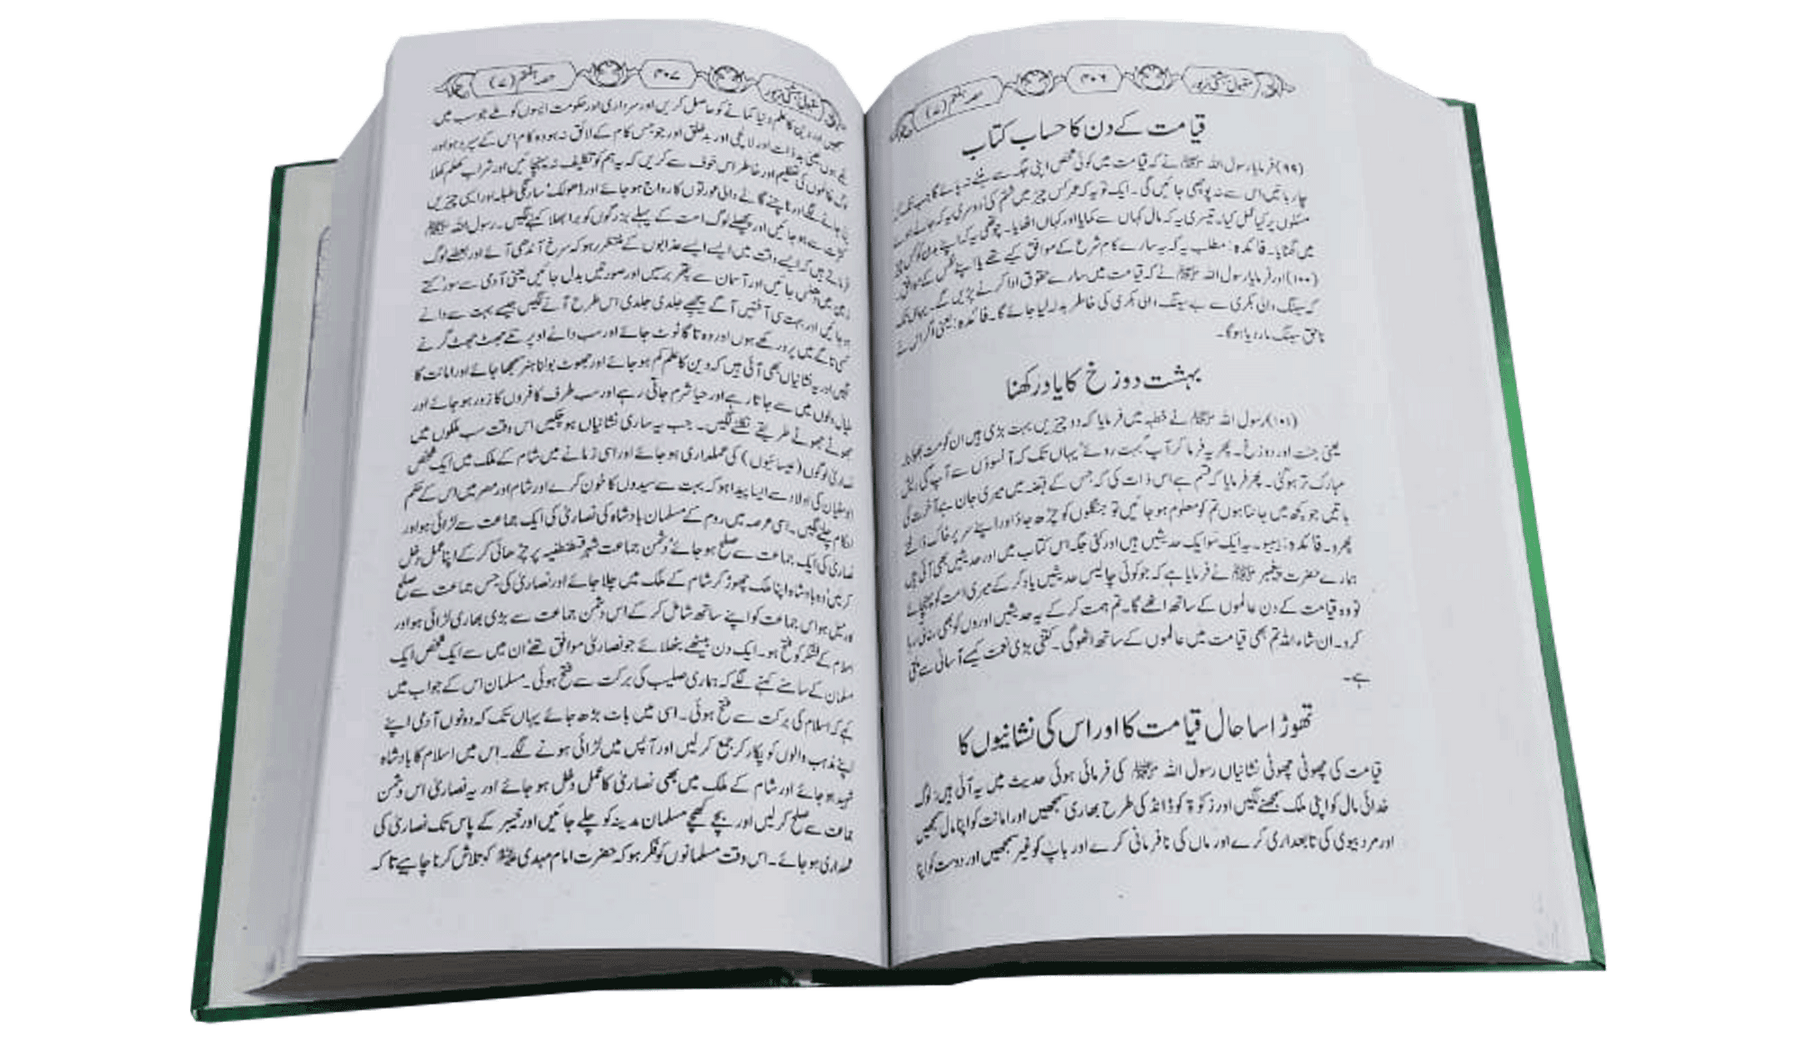 مقبول بہشتی زیور ۳۰۶ حصہ ہفتم (۷)
قیامت کے دن کا حساب کتاب
(۹۹) فرمایا رسول اللہ ﷺ نے کہ قیامت میں کوئی شخص اپنی جگہ سے ہٹنے نہ پائے گا جب تک کہ
چار باتیں اس سے نہ پوچھی جائیں گی۔ ایک تو یہ کہ عمر کس چیز میں ختم کی دوسری یہ کہ جانے ہوئے
مسئلوں پر کیا عمل کیا۔ تیسری یہ کہ مال کہاں سے کمایا اور کہاں اٹھایا۔ چوتھی یہ کہ اپنے بدن کو کس چیز
میں گھٹایا۔ فائدہ: مطلب یہ کہ یہ سارے کام شرع کے موافق کیے تھے یا اپنے نفس کے موافق
(۱۰۰) اور فرمایا رسول اللہ ﷺ نے کہ قیامت میں سارے حقوق ادا کرنے پڑیں گے۔ یہاں تک
کہ سینگ والی بکری سے بے سینگ والی بکری کی خاطر بدلہ لیا جائے گا۔ فائدہ: یعنی اگر اس نے
ناحق سینگ مار دیا ہوگا۔
بہشت دوزخ کا یاد رکھنا
(۱۰۱) رسول اللہ ﷺ نے خطبہ میں فرمایا کہ دو چیزیں بہت بڑی ہیں ان کو مت بھولنا۔
یعنی جنت اور دوزخ۔ پھر یہ فرما کر آپ بہت روئے یہاں تک کہ آنسوؤں سے آپ کی ریش
مبارک تر ہو گئی۔ پھر فرمایا کہ قسم ہے اس ذات کی کہ جس کے قبضہ میں میری جان ہے آخرت کی
باتیں جو کچھ میں جانتا ہوں تم کو معلوم ہو جائیں تو جنگلوں کو چڑھ جاؤ اور اپنے سر پر خاک ڈالتے
پھرو۔ فائدہ: بیبیو۔ یہ ایک سو ایک حدیثیں ہیں اور کئی جگہ اس کتاب میں اور حدیثیں بھی آئی ہیں
ہمارے حضرت پیغمبر ﷺ نے فرمایا ہے کہ جو کوئی چالیس حدیثیں یاد کر کے میری امت کو پہنچائے
تو وہ قیامت کے دن عالموں کے ساتھ اٹھے گا۔ تم ہمت کر کے یہ حدیثیں اوروں کو بھی سناتی رہا
کرو۔ ان شاء اللہ تم بھی قیامت میں عالموں کے ساتھ اٹھو گی۔ کتنی بڑی نعمت کیسے آسانی سے ملتی
ہے۔
تھوڑا سا حال قیامت کا اور اس کی نشانیوں کا
قیامت کی چھوٹی چھوٹی نشانیاں رسول اللہ ﷺ کی فرمائی ہوئی حدیث میں یہ آئی ہیں: لوگ
خدائی مال کو اپنی ملک سمجھنے لگیں اور زکوٰۃ کو ڈانڈ کی طرح بھاری سمجھیں اور امانت کو اپنا مال سمجھیں
اور مرد بیوی کی تابعداری کرے اور ماں کی نافرمانی کرے اور باپ کو غیر سمجھیں اور دوست کو اپنا
مقبول بہشتی زیور ۳۰۷ حصہ ہفتم (۷)
سمجھیں اور دین کا علم دنیا کمانے کو حاصل کریں اور سرداری اور حکومت ایسوں کو ملے جو سب میں
نکمے ہوں یعنی بد ذات اور لالچی اور بد خلق اور جو جس کام کے لائق نہ ہو وہ کام اس کے سپرد ہو اور
لوگ ظالموں کی تعظیم اور خاطر اس خوف سے کریں کہ یہ ہم کو تکلیف نہ پہنچائیں اور شراب کھلم کھلا
پی جانے لگے اور ناچنے گانے والی عورتوں کا رواج ہو جائے اور ڈھولک سارنگی طبلہ اور ایسی چیزیں
کثرت سے ہو جائیں اور پچھلے لوگ امت کے پہلے بزرگوں کو برا بھلا کہنے لگیں۔ رسول اللہ ﷺ
فرماتے ہیں کہ ایسے وقت میں ایسے ایسے عذابوں کے منتظر رہو کہ سرخ آندھی آئے اور بعضے لوگ
زمین میں دھنس جائیں اور آسمان سے پتھر برسیں اور صورتیں بدل جائیں یعنی آدمی سے سور کتے
ہو جائیں اور بہت سی آفتیں آگے پیچھے جلدی جلدی اس طرح آنے لگیں جیسے بہت سے دانے
کسی تاگے میں پرو رکھے ہوں اور وہ تاگا ٹوٹ جائے اور سب دانے اوپر تلے جھٹ جھٹ گرنے
لگیں اور یہ نشانیاں بھی آئی ہیں کہ دین کا علم کم ہو جائے اور جھوٹ بولنا ہنر سمجھا جائے اور امانت کا
خیال دلوں میں سے جاتا رہے اور حیا شرم جاتی رہے اور سب طرف کافروں کا زور ہو جائے اور
جھوٹے جھوٹے طریقے نکلنے لگیں۔ جب یہ ساری نشانیاں ہو چکیں اس وقت سب ملکوں میں
نصاریٰ لوگوں (عیسائیوں) کی عملداری ہو جائے اور اسی زمانے میں شام کے ملک میں ایک شخص
ابوسفیان کی اولاد سے ایسا پیدا ہو کہ بہت سے سیدوں کا خون کرے اور شام اور مصر میں اس کے حکم
احکام چلنے لگیں۔ اسی عرصہ میں روم کے مسلمان بادشاہ کی نصاریٰ کی ایک جماعت سے لڑائی ہو اور
نصاریٰ کی ایک جماعت سے صلح ہو جائے دشمن جماعت شہر قسطنطنیہ پر چڑھائی کر کے اپنا عمل دخل
کر لیں وہ بادشاہ اپنا ملک چھوڑ کر شام کے ملک میں چلا جائے اور نصاریٰ کی جس جماعت سے صلح
و میل ہو اس جماعت کو اپنے ساتھ شامل کر کے اس دشمن جماعت سے بڑی بھاری لڑائی ہو اور
اسلام کے لشکر کو فتح ہو۔ ایک دن بیٹھے بٹھلائے جو نصاریٰ موافق تھے ان میں سے ایک شخص ایک
مسلمان کے سامنے کہنے لگے کہ ہماری صلیب کی برکت سے فتح ہوئی۔ مسلمان اس کے جواب میں
کہے کہ اسلام کی برکت سے فتح ہوئی۔ اسی میں بات بڑھ جائے یہاں تک کہ دونوں آدمی اپنے
اپنے مذہب والوں کو پکار کر جمع کر لیں اور آپس میں لڑائی ہونے لگے۔ اس میں اسلام کا بادشاہ
شہید ہو جائے اور شام کے ملک میں بھی نصاریٰ کا عمل دخل ہو جائے اور یہ نصاریٰ اس دشمن
جماعت سے صلح کر لیں اور بچے کھچے مسلمان مدینہ کو چلے جائیں اور خیبر کے پاس تک نصاریٰ کی
عملداری ہو جائے۔ اس وقت مسلمانوں کو فکر ہو کہ حضرت امام مہدی علیہ السلام کو تلاش کرنا چاہیے تاکہ